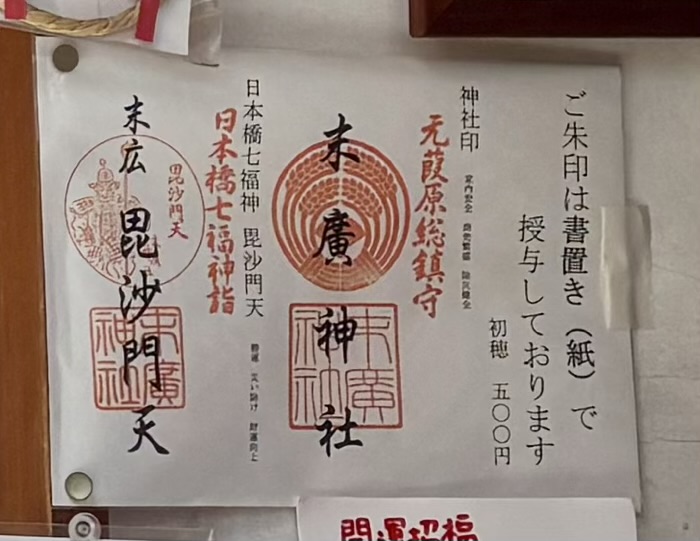 ご朱印は書置き（紙）で
授与しております
初穂 五〇〇円
神社印
家内安全 商売繁盛 除災健全
元葭原総鎮守
末廣神社
末廣神社
日本橋七福神 毘沙門天
勝運 災い除け 財運向上
日本橋七福神詣
末広毘沙門天
毘沙門天
末廣神社
開運招福